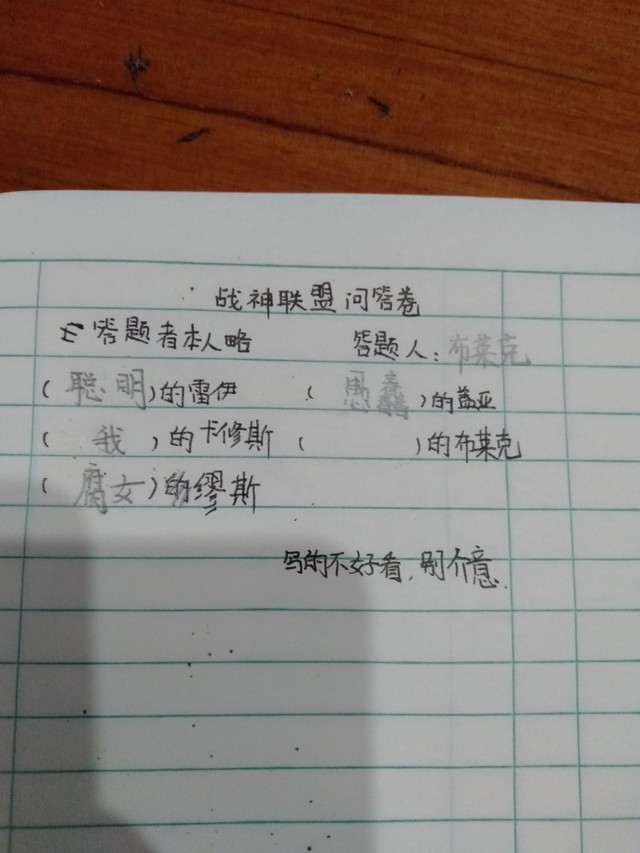 战神联盟问答卷
答题者本人略 答题人：布莱克
（聪明）的雷伊 （愚蠢）的盖亚
（我）的卡修斯 （ ）的布莱克
（腐女）的缪斯
写的不好看，别介意.